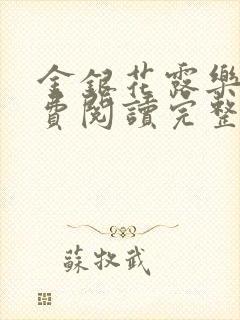 金銀花露樂
費閱讀完整
蘇牧武